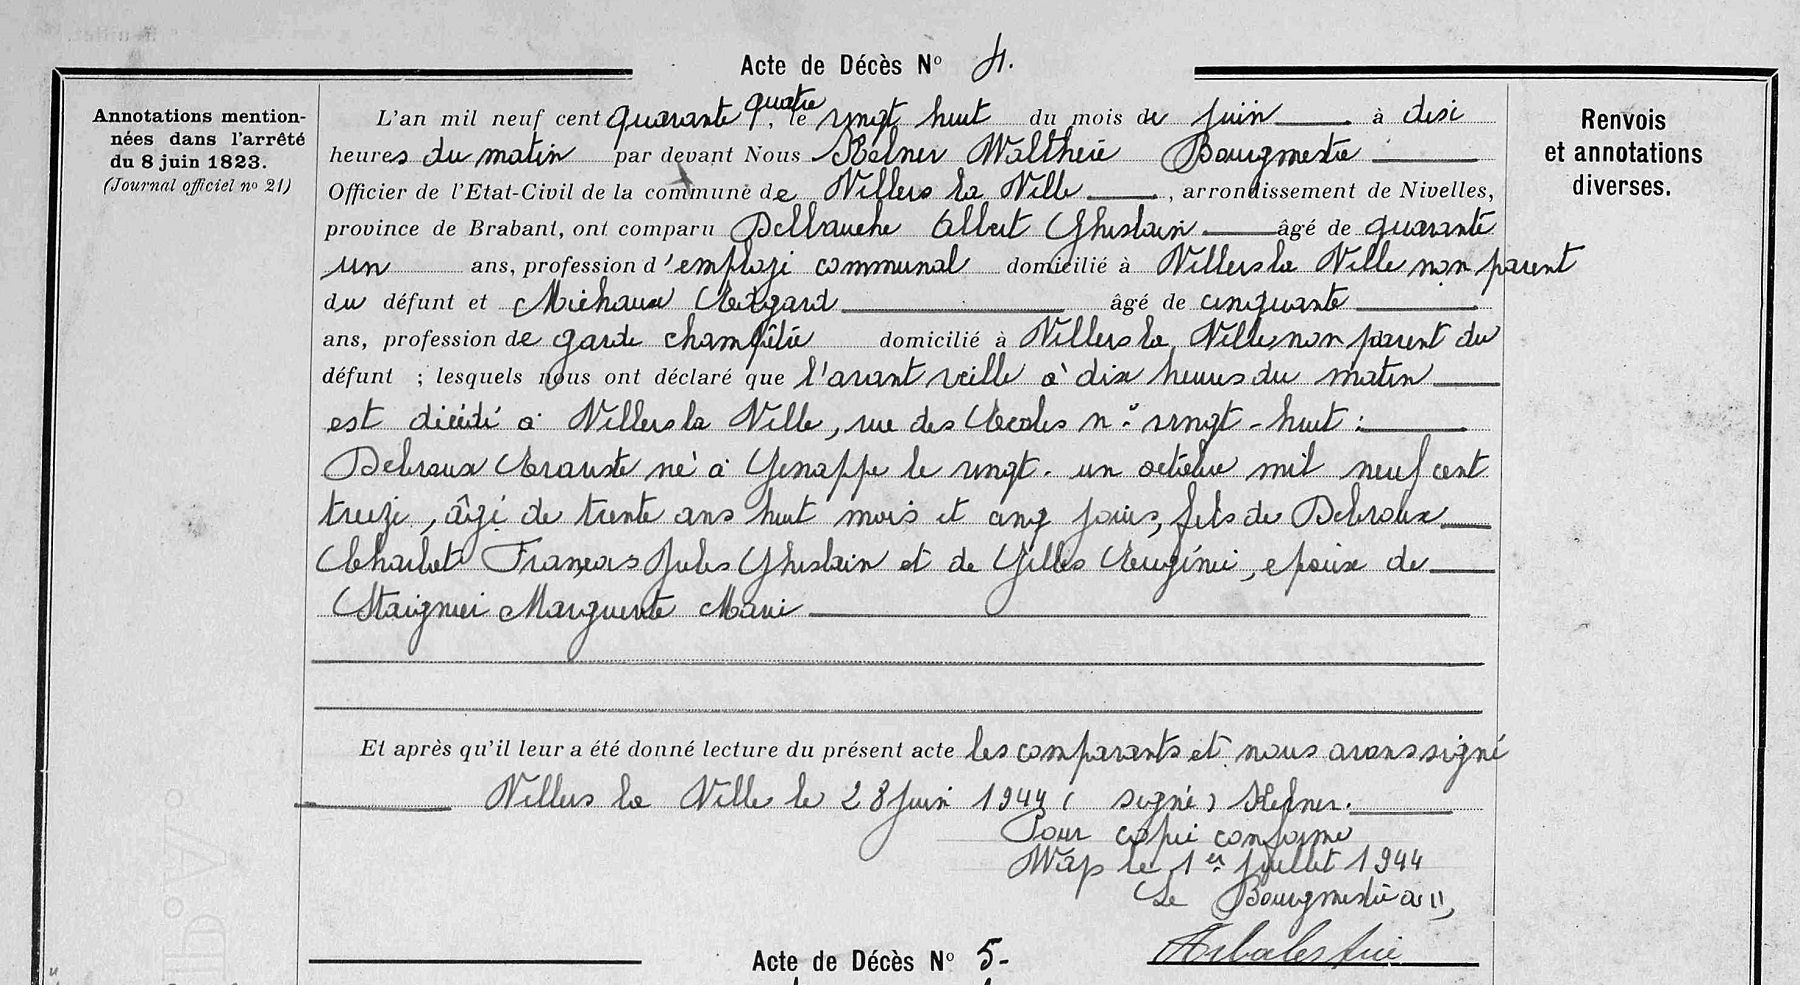 Acte de Décès Nº 4.
Annotations mention-
nées dans l'arrêté
du 8 juin 1823.
(Journal officiel nº 21)
L'an mil neuf cent quarante quatre, le vingt huit du mois de juin à dix
heures du matin par devant Nous Kelner Walthère Bourgmestre
Officier de l'Etat-Civil de la commune de Villers la Ville, arrondissement de Nivelles,
province de Brabant, ont comparu Delbauche Albert Ghislain âgé de quarante
un ans, profession d'employé communal domicilié à Villers la Ville non parent
du défunt et Michaux Edgard âgé de cinquante
ans, profession de garde champêtre domicilié à Villers la Ville, non parent du
défunt ; lesquels nous ont déclaré que l'avant veille à dix heures du matin
est décédé à Villers la Ville, rue des Ecoles nº vingt-huit :
Debroux Evariste né à Genappe le vingt-un octobre mil neuf cent
treize, âgé de trente ans huit mois et cinq jours, fils de Debroux
Charles François Jules Ghislain et de Gilles Eugénie, époux de
Marguerite Marie
Et après qu'il leur a été donné lecture du présent acte les comparants et nous avons signé
Villers la Ville le 28 juin 1944 ( signé ) Kelner.
Pour copie conforme
le 1er juillet 1944
Le Bourgmestre
Arbalestrie
Renvois
et annotations
diverses.
Acte de Décès Nº 5-